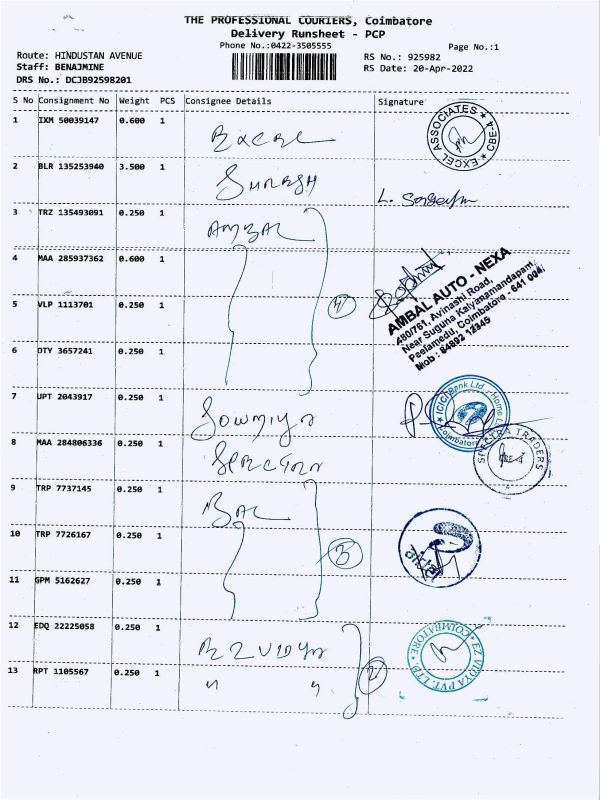 THE PROFESSIONAL COURIERS, Coimbatore
Delivery Runsheet - PCP
Phone No.:0422-3505555
Page No.:1
Route: HINDUSTAN AVENUE
RS No.: 925982
Staff: BENAJMINE
RS Date: 20-Apr-2022
DRS No.: DCJB92598201
S No Consignment No Weight PCS Consignee Details Signature
1 IXM 50039147 0.600 1 Excel
EXCEL ASSOCIATES ★ CBE-4 ★
2 BLR 135253940 3.500 1 SURESH
3 TRZ 135493091 0.250 1 AMBAL
4 MAA 285937362 0.600 1
4
AMBAL AUTO - NEXA
430/761, Avinashi Road,
Near Suguna Kalyanamandapam,
Peelamedu, Coimbatore - 641 004.
Mob : 84892 12345
5 VLP 1113701 0.250 1
6 OTY 3657241 0.250 1
7 UPT 2043917 0.250 1 Sowmiya
ICICI Bank Ltd., Home
Coimbatore
8 MAA 284806336 0.250 1 SPECTRA
SPECTRA TRADERS
9 TRP 7737145 0.250 1 BAL
10 TRP 7726167 0.250 1
3
11 GPM 5162627 0.250 1
12 EDQ 22225058 0.250 1 EZ VIDYA
EZ VIDYA PVT. LTD. ★ COIMBATORE ★
13 RPT 1105567 0.250 1 " "
2